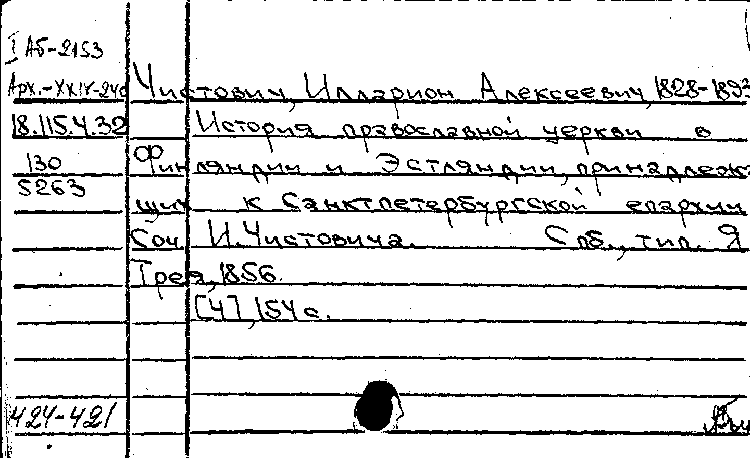 I Аб-2153
Арх.-XXIV-240 Чистович, Илларион Алексеевич, 1828-1893
18.115.4.32 История православной церкви в
130 Финляндии и Эстляндии, принадлежа
5263 щих к Санктпетербургской епархии
Соч. И. Чистовича. Спб., тип. Я
Трея, 1856.
[4], 154 с.
424-421